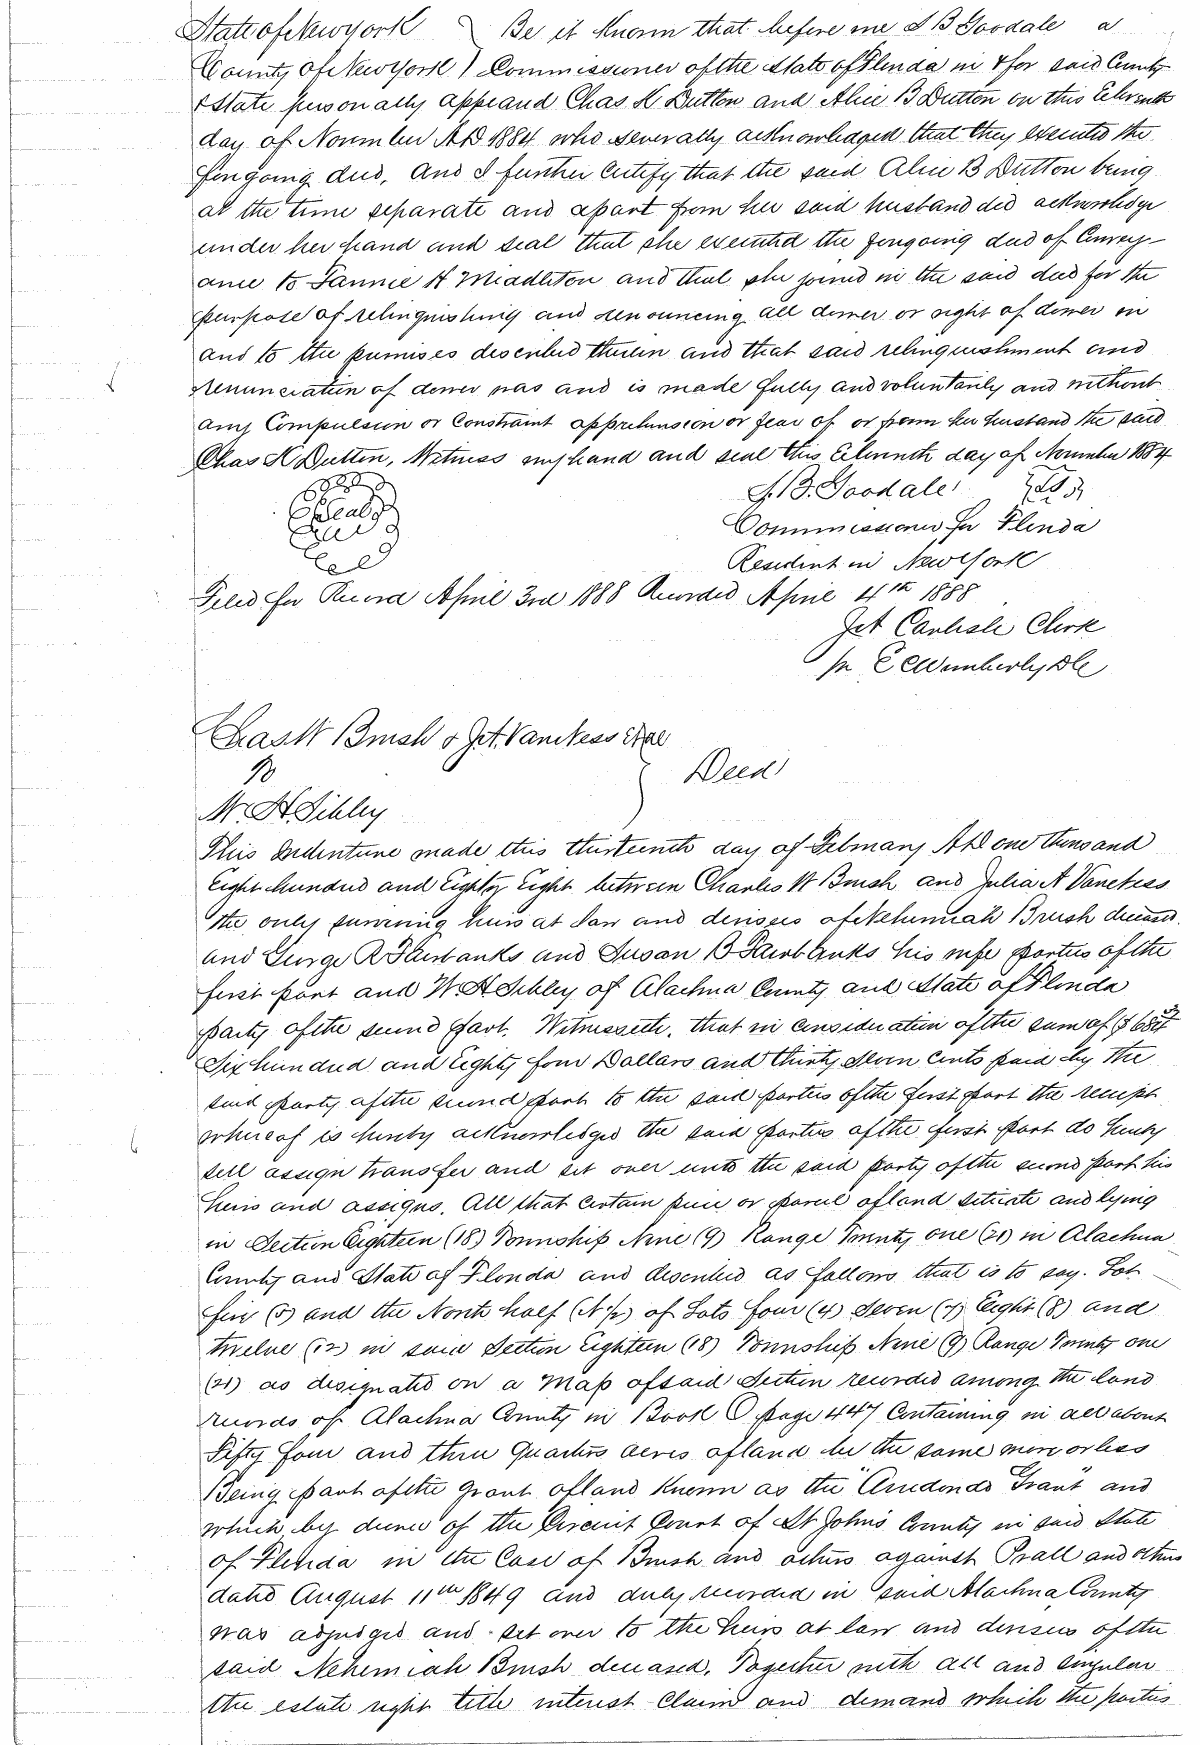 State of New York } Be it Known that before me S B Goodale a
County of New York ) Commissioner of the State of Florida in & for said County
& State personally appeared Chas K Dutton and Alice B Dutton on this Eleventh
day of November AD 1884 who severally acknowledged that they executed the
foregoing deed, And I further Certify that the said Alice B Dutton being
at the time separate and apart from her said husband did acknowledge
under her hand and seal that she executed the foregoing deed of Convey-
ance to Fannie A Middleton and that she joined in the said deed for the
purpose of relinquishing and renouncing all dower or right of dower in
and to the premises described therein and that said relinquishment and
renunciation of dower was and is made fully and voluntarily and without
any Compulsion or Constraint apprehension or fear of or from her husband the said
Chas K Dutton, Witness my hand and seal this Eleventh day of November 1884
Seal S. B. Goodale {LS}
Commissioner for Florida
Resident in New York
Filed for Record April 3rd 1888 Recorded April 4th 1888
J A Carlisle Clerk
pr E C Wimberly DC
Chas W Brush & J A Van Ness et al
To } Deed
W. H. Sibley
This Indenture made this thirteenth day of February AD one thousand
Eight hundred and Eighty Eight between Charles W Brush and Julia A Van Ness
the only surviving heirs at law and devisees of Nehemiah Brush deceased
and George R Fairbanks and Susan B Fairbanks his wife parties of the
first part and W. H. Sibley of Alachua County and State of Florida
party of the second part. Witnesseth, that in consideration of the sum of $684 37
Six hundred and Eighty four Dollars and thirty seven cents paid by the
said party of the second part to the said parties of the first part the receipt
whereof is hereby acknowledged the said parties of the first part do hereby
sell assign transfer and set over unto the said party of the second part his
heirs and assigns. All that certain piece or parcel of land situate and lying
in Section Eighteen (18) Township Nine (9) Range Twenty one (21) in Alachua
County and State of Florida and described as follows that is to say. Lot
five (5) and the North half (N 1/2) of Lots four (4) Seven (7) Eight (8) and
twelve (12) in said Section Eighteen (18) Township Nine (9) Range Twenty one
(21) as designated on a Map of said Section recorded among the land
records of Alachua County in Book O page 447 Containing in all about
Fifty four and three Quarters acres of land be the same more or less
Being part of the grant of land Known as the "Arredondo Grant" and
which by decree of the Circuit Court of St Johns County in said State
of Florida in the Case of Brush and others against Prall and others
dated August 11th 1849 and duly recorded in said Alachua County
was adjudged and set over to the heirs at law and devisees of the
said Nehemiah Brush deceased, Together with all and singular
the estate right title interest claim and demand which the parties